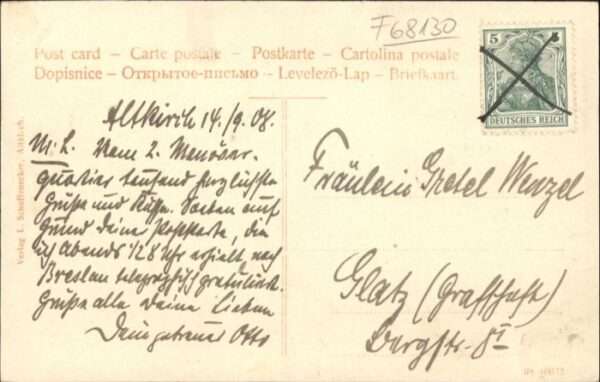 F68130
Post card – Carte postale – Postkarte – Cartolina postale
Dopisnice – Открытое-письмо – Levelező-Lap – Briefkaart.
5
DEUTSCHES REICH
Altkirch 14./9.08.
M. L. Vom 2. Manöver-
quartier tausend herzlichste
Grüße und Küsse. Soeben auf
Grund deine Postkarte, die
ich Abends 1/2 8 Uhr erhielt, nach
Breslau telegraphisch gratuliert.
Grüße alle deine Lieben
Dein getreuer Otto
Fräulein Gretel Wenzel
Glatz (Grafschaft)
Bergstr. 8 I
Verlag L. Scheffenecker,